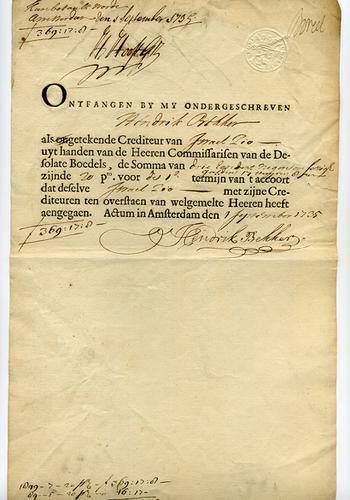 Kan betaalt worde
Amsterdam den 1 September 1735
ƒ 369:17:8
ONTFANGEN BY MY ONDERGESCHREVEN
Hendrik Bekker
als ongetekende Crediteur van Israel
uyt handen van de Heeren Commissarisen van de De-
solate Boedels, de Somma van drie hondert negen en sestigh
gulden 17
zijnde 20 pᶜᵒ. voor des 1ᵉ termijn van 't accoort
dat deselve Israel met zijne Cre-
diteuren ten overstaen van welgemelte Heeren heeft
aengegaen. Actum in Amsterdam den 1 September 1735
ƒ 369:17:8
Hendrik Bekker
1849-7- 20 ƒ 369:17:8
20 16:17